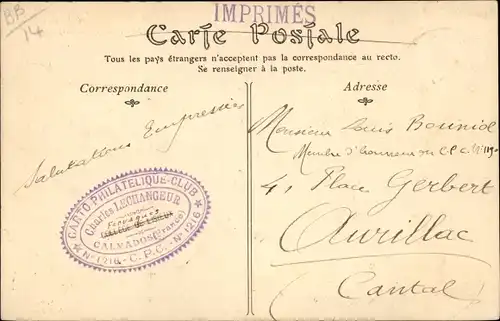 BB
14
IMPRIMÉS
Carte Postale
Tous les pays étrangers n'acceptent pas la correspondance au recto.
Se renseigner à la poste.
Correspondance
Adresse
Salutations Empressées
CARTO PHILATELIQUE-CLUB
Charles LECHANGEUR
CALVADOS (France)
N° 1216 - C.P.C. - N° 1216
Monsieur Louis Bouniol
Membre d'honneur du C.P.C.
4, Place Gerbert
Aurillac
Cantal